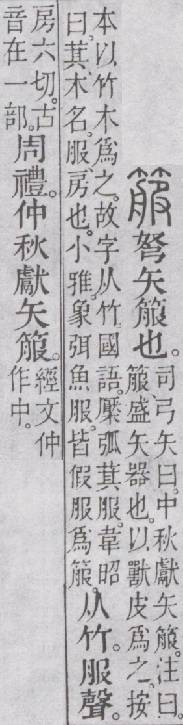 箙
弩矢箙也。
司弓矢曰。中秋獻矢箙。注曰。
箙盛矢器也。以獸皮爲之。按
本以竹木爲之。故字从竹。國語。檿弧萁服。韋昭
曰。萁木名。服房也。小雅。象弭魚服。皆假服爲箙。
从竹。服聲。
房六切。古
音在一部。
周禮。仲秋獻矢箙。
經文仲
作中。